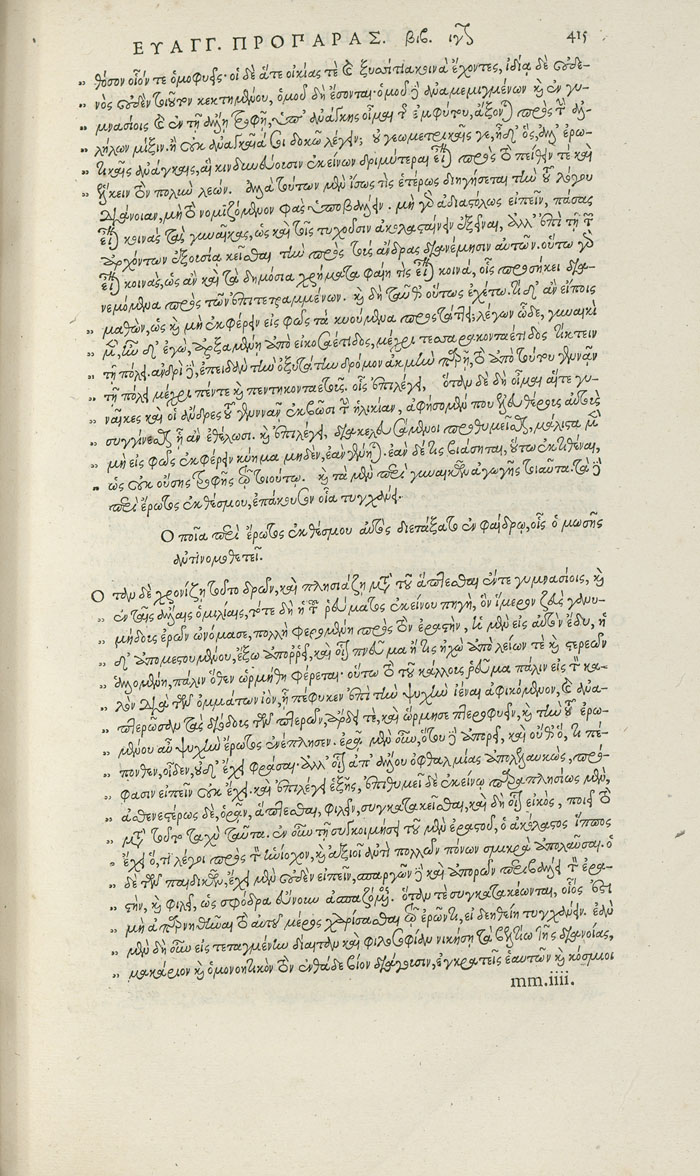 ΕΥΑΓΓ. ΠΡΟΠΑΡΑΣ. βιβ. ιγ 415
θόσον οἷόν τε ὁμοφυεῖς· οἱ δὲ ἅτε οἰκίας τὲ καὶ ξυσσίτια κοινὰ ἔχοντες, ἰδίᾳ δὲ οὐδε-
νὸς οὐδὲν τοιοῦτον κεκτημένου, ὁμοῦ δὴ ἔσονται· ὁμοῦ δὲ ἀναμεμιγμένων καὶ ἐν γυ-
μνασίοις καὶ ἐν τῇ ἄλλῃ τροφῇ, ὑπ' ἀνάγκης οἶμαι τῆς ἐμφύτου, ἄξονται πρὸς τὴν ἀλ-
λήλων μίξιν. ἢ οὐκ ἀναγκαῖά σοι δοκῶ λέγειν; οὐ γεωμετρικαῖς γε, ἦ δ' ὃς, ἀλλ' ἐρω-
τικαῖς ἀνάγκαις, αἳ κινδυνεύουσιν ἐκείνων δριμύτεραι εἶναι πρὸς τὸ πείθειν τὲ καὶ
ἕλκειν τὸν πολὺν λεών. ἀλλὰ τούτων μὲν ἴσως τὶς ἑτέρως διηγήσεται τὴν τοῦ λόγου
διάνοιαν, μὴ τὸ νομιζόμενον φὰς ὑποβάλλειν. μὴ γὰρ ἀδιαστόλως εἰπεῖν, πάσας
εἶναι κοινὰς τὰς γυναῖκας, ὡς καὶ τοῖς τυχοῦσιν ἀκολασταίνειν ἐξεῖναι, ἀλλ' ἐπὶ τῇ τῶν
ἀρχόντων ἐξουσίᾳ κεῖσθαι τὴν πρὸς τοὺς ἄνδρας διανέμησιν αὐτῶν. οὕτω γὰρ
εἶναι κοινὰς, ὡς ἂν καὶ τὰ δημόσια χρήματα φαίη τὶς εἶναι κοινά, οἷς προσήκει δια-
νεμόμενα πρὸς τῶν ἐπιτετραμμένων. καὶ δὴ ταῦθ' οὕτως ἐχέτω. τί δ' ἂν εἴποις
μαθὼν, ὡς καὶ μὴ ἐκφέρειν εἰς φῶς τὰ κυούμενα προστάττει; λέγων ὧδε, γυναικὶ
μὲν, ἦν δ' ἐγὼ, ἀρξαμένῃ ἀπὸ εἰκοσαέτιδος, μέχρι τεσσαρακονταέτιδος τίκτειν
τῇ πόλει. ἀνδρὶ δὲ, ἐπειδὰν τὴν ὀξυτάτην δρόμου ἀκμὴν παρῇ, τὸ ἀπὸ τούτου γεννᾶν
τῇ πόλει μέχρι πέντε καὶ πεντηκονταετοῦς. οἷς ἐπιλέγει, ὅταν δὲ δὴ οἶμαι αἵτε γυ-
ναῖκες καὶ οἱ ἄνδρες τοῦ γεννᾶν ἐκβῶσι τὴν ἡλικίαν, ἀφήσομέν που ἐλευθέρους αὐτοὺς
συγγίνεσθαι ᾗ ἂν ἐθέλωσι. καὶ ἐπιλέγει, διακελευσάμενοι προθυμεῖσθαι, μάλιστα μὲν
μὴ εἰς φῶς ἐκφέρειν κύημα μηδὲν, ἐὰν γένηται. ἐὰν δέ τις βιάσηται, οὕτω ἐκτιθέναι,
ὡς οὐκ οὔσης τροφῆς τῷ τοιούτῳ. καὶ τὰ μὲν περὶ γυναικῶν ἀγωγῆς τοιαῦτα. τὰ δὲ
περὶ ἔρωτος ἐκθέσμου, ἐπάκουσον οἷα τυγχάνει.
Ὁποῖα περὶ ἔρωτος ἐκθέσμου αὐτὸς διετάξατο ἐν φαίδρῳ, οἷς ὁ μωσῆς
ἀντινομοθετεῖ.
Ὅταν δὲ χρονίζῃ τοῦτο δρῶν, καὶ πλησιάζῃ μετὰ τοῦ ἅπτεσθαι ἔντε γυμνασίοις, καὶ
ἐν ταῖς ἄλλαις ὁμιλίαις, τότε δὴ ἡ τοῦ ῥεύματος ἐκείνου πηγὴ, ὃν ἵμερον ζεὺς γανυ-
μήδους ἐρῶν ὠνόμασε, πολλὴ φερομένη πρὸς τὸν ἐραστὴν, ἡ μὲν εἰς αὐτὸν ἔδυ, ἡ
δ' ἀπομεστουμένου, ἔξω ἀπορρεῖ, καὶ οἷον πνεῦμα ἤ τις ἠχὼ ἀπὸ λείων τὲ καὶ στερεῶν
ἁλλομένη, πάλιν ὅθεν ὡρμήθη φέρεται· οὕτω τὸ τοῦ κάλλους ῥεῦμα πάλιν εἰς τὸν κα-
λὸν διὰ τῶν ὀμμάτων ἰὸν, ᾗ πέφυκεν ἐπὶ τὴν ψυχὴν ἰέναι ἀφικόμενον, καὶ ἀνα-
πτερῶσαν τὰς διόδους τῶν πτερῶν, ἄρδει τὲ, καὶ ὥρμησε πτεροφυεῖν, καὶ τὴν τοῦ ἐρω-
μένου αὖ ψυχὴν ἔρωτος ἐνέπλησεν. ἐρᾷ μὲν οὖν, ὅτου δὲ ἀπορεῖ, καὶ οὔθ' ὅ, τι πέ-
πονθεν, οἶδεν, οὐδ' ἔχει φράσαι· ἀλλ' οἷον ἀπ' ἄλλου ὀφθαλμίας ἀπολελαυκὼς, πρό-
φασιν εἰπεῖν οὐκ ἔχει. καὶ ἐπιλέγει ἑξῆς, ἐπιθυμεῖ δὲ ἐκείνῳ παραπλησίως μὲν,
ἀσθενεστέρως δὲ, ὁρᾶν, ἅπτεσθαι, φιλεῖν, συγκατακεῖσθαι, καὶ δὴ οἷον εἰκὸς, ποιεῖ τὸ
μετὰ τοῦτο ταχὺ ταῦτα. ἐν οὖν τῇ συγκοιμήσει τοῦ μὲν ἐραστοῦ, ὁ ἀκόλαστος ἵππος
ἔχει ὅ, τι λέγοι πρὸς τὸν ἡνίοχον, καὶ ἀξιοῖ ἀντὶ πολλῶν πόνων σμικρὰ ἀπολαῦσαι. ὁ
δὲ τῶν παιδικῶν, ἔχει μὲν οὐδὲν εἰπεῖν, σπαργῶν δὲ καὶ ἀπορῶν περιβάλλει τὸν ἐρα-
στὴν, καὶ φιλεῖ, ὡς σφόδρα εὔνουν ἀσπαζόμενος. ὅταν τὲ συγκατακέωνται, οἷός ἐστι
μὴ ἀπαρνηθῆναι τὸ αὑτοῦ μέρος χαρίσασθαι τῷ ἐρῶντι, εἰ δεηθείη τυχεῖν. ἐὰν
μὲν δὴ οὖν εἰς τεταγμένην δίαιταν καὶ φιλοσοφίαν νικήσῃ τὰ βελτίω τῆς διανοίας,
μακάριον καὶ ὁμονοητικὸν τὸν ἐνθάδε βίον διάγουσιν, ἐγκρατεῖς ἑαυτῶν καὶ κόσμιοι
mm.iiii.